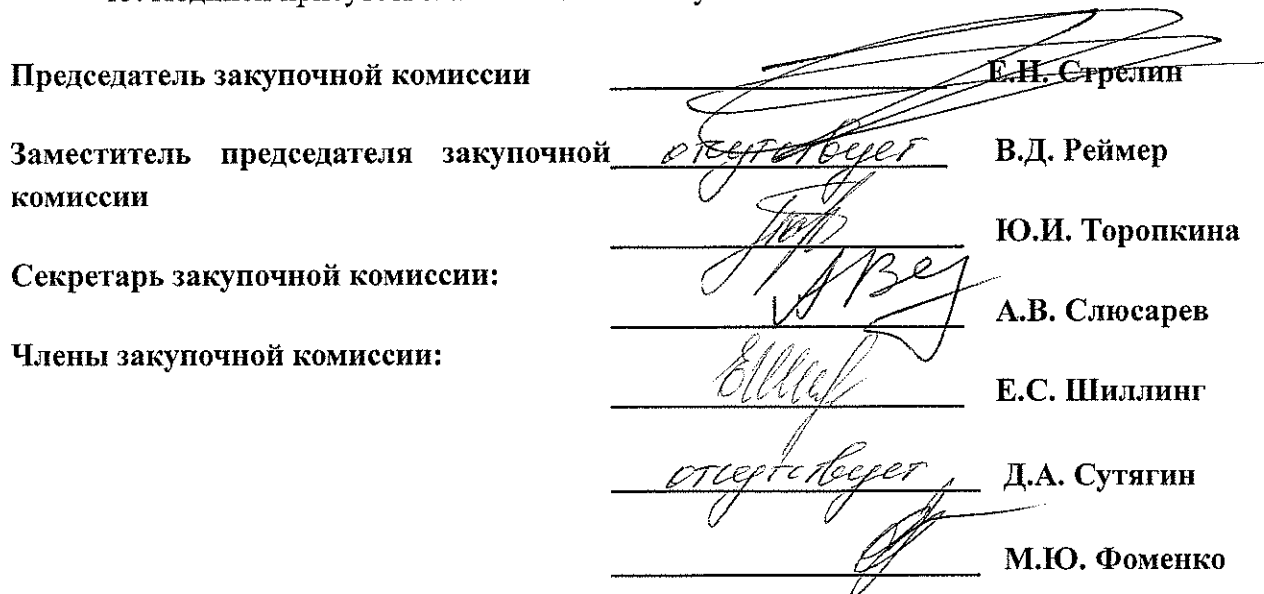 Председатель закупочной комиссии Е.Н. Стрелин
Заместитель председателя закупочной отсутствует В.Д. Реймер
комиссии
Ю.И. Торопкина
Секретарь закупочной комиссии:
А.В. Слюсарев
Члены закупочной комиссии:
Е.С. Шиллинг
отсутствует Д.А. Сутягин
М.Ю. Фоменко